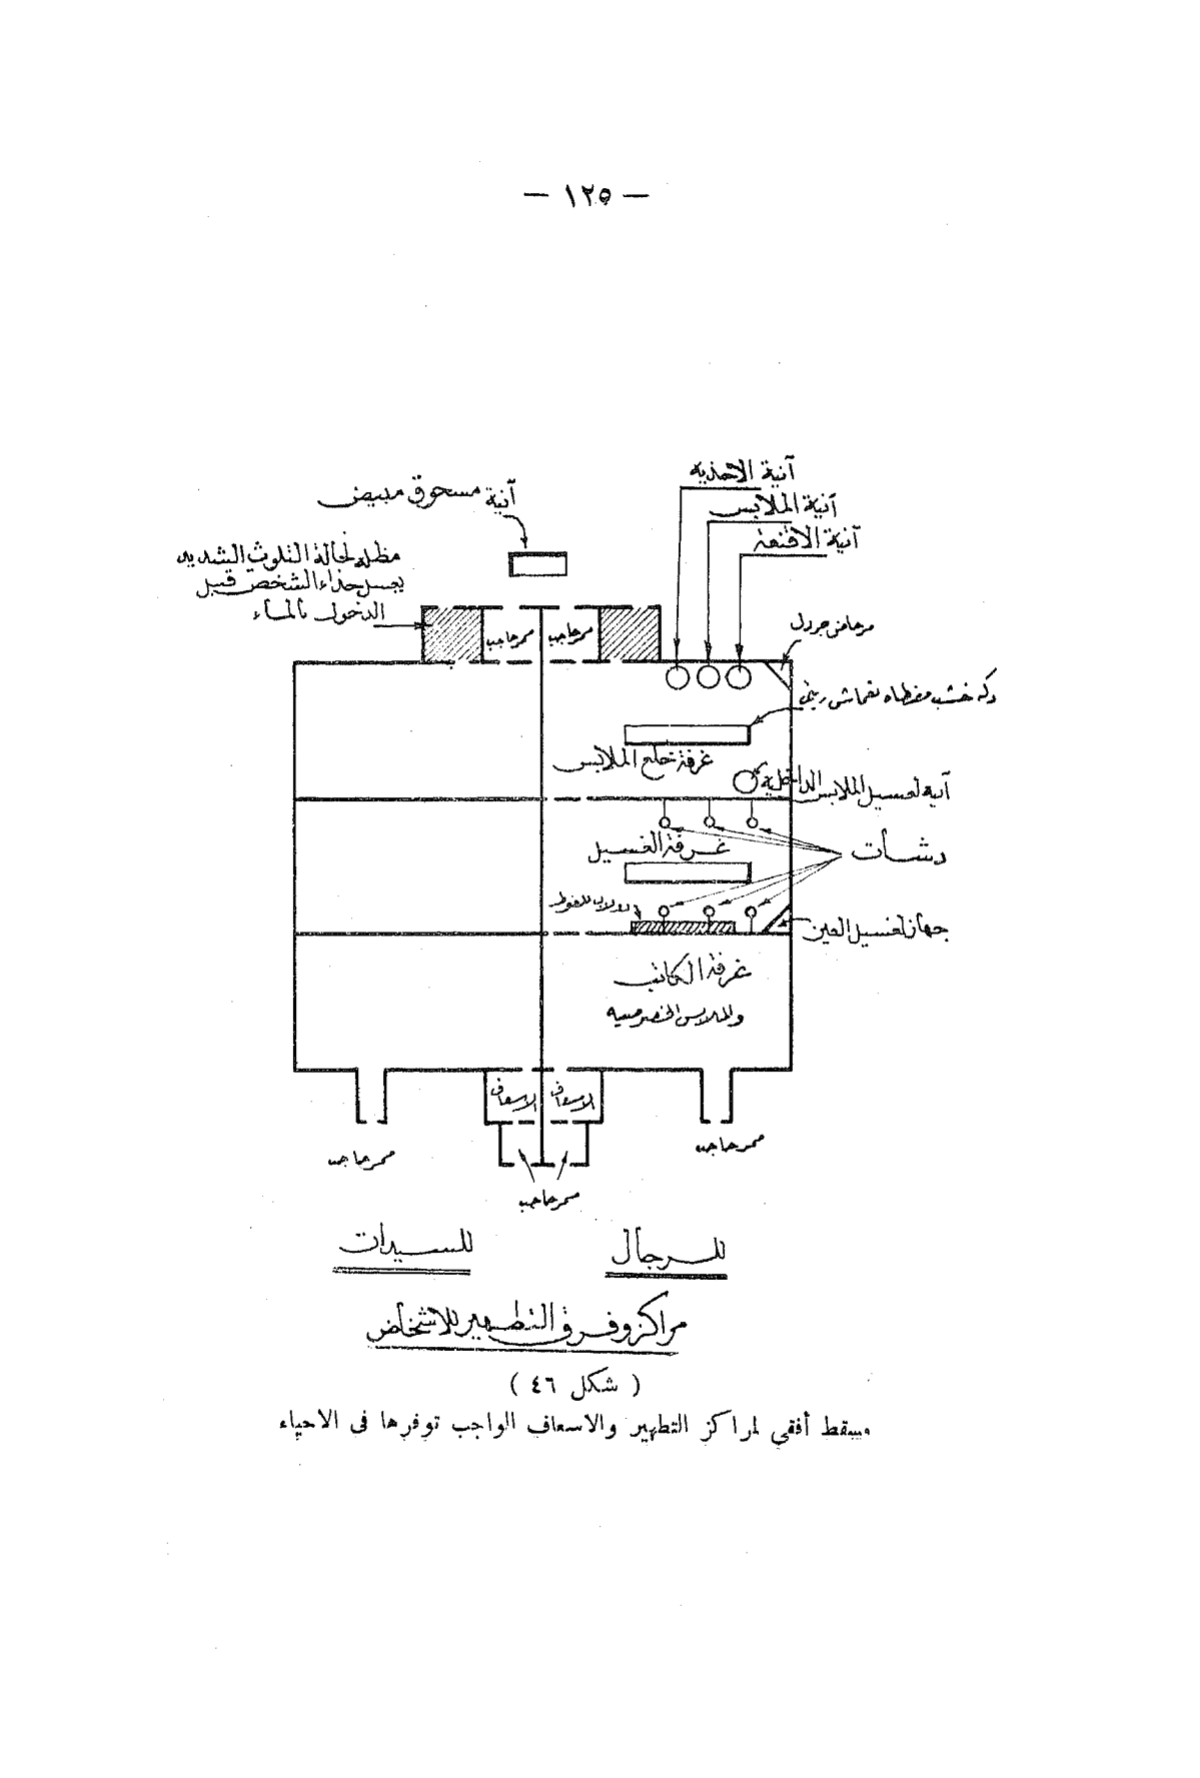 — ١٢٥ —
آنية الاحذيه
آنية مسحوق مبيض
آنية الملابس
آنية الاقنعة
مظله لحالة التلوث الشديد
يغسل حذاء الشخص قبل
الدخول بالماء
ممر حاجب
ممر حاجب
مرحاض جردل
دكه خشب مغطاه بقماش زيتى
غرفة خلع الملابس
آنية لغسيل الملابس الداخلية
غرفة الغسيل
دشات
دولاب للفوط
جهاز لغسيل العين
غرفة الكاتب
والملابس الخصوصيه
الاسعاف
الاسعاف
ممر حاجب
ممر حاجب
ممر حاجب
للرجال
للسيدات
مراكز وفرق التطهير للاشخاص
( شكل ٤٦ )
مسقط أفقي لمراكز التطهير والاسعاف الواجب توفرها فى الاحياء